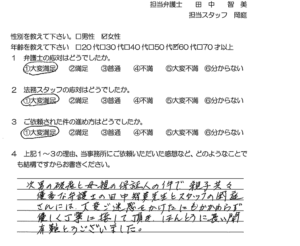 担当弁護士　田 中 智 美
担当スタッフ 岡庭
性別を教えて下さい □男性 ☑女性
年齢を教えて下さい □20代□30代□40代□50代☑60代□70才以上
1 弁護士の応対はどうでしたか。
①大変満足 ②満足 ③普通 ④不満 ⑤大変不満 ⑥分からない
2 法務スタッフの応対はどうでしたか。
①大変満足 ②満足 ③普通 ④不満 ⑤大変不満 ⑥分からない
3 ご依頼された件の進め方はどうでしたか。
①大変満足 ②満足 ③普通 ④不満 ⑤大変不満 ⑥分からない
4 上記1～3の理由、当事務所にご依頼いただいた感想など、どのようなことで
も結構ですからお書きください。
次男の破産と母親の保証人の件で親子共々
優秀な弁護士の田中智美先生とスタッフの岡庭
さんには、大変ご迷惑をかけたにもかかわらず
優しく丁寧に接して頂き ほんとうに長い間
有難とうございました。